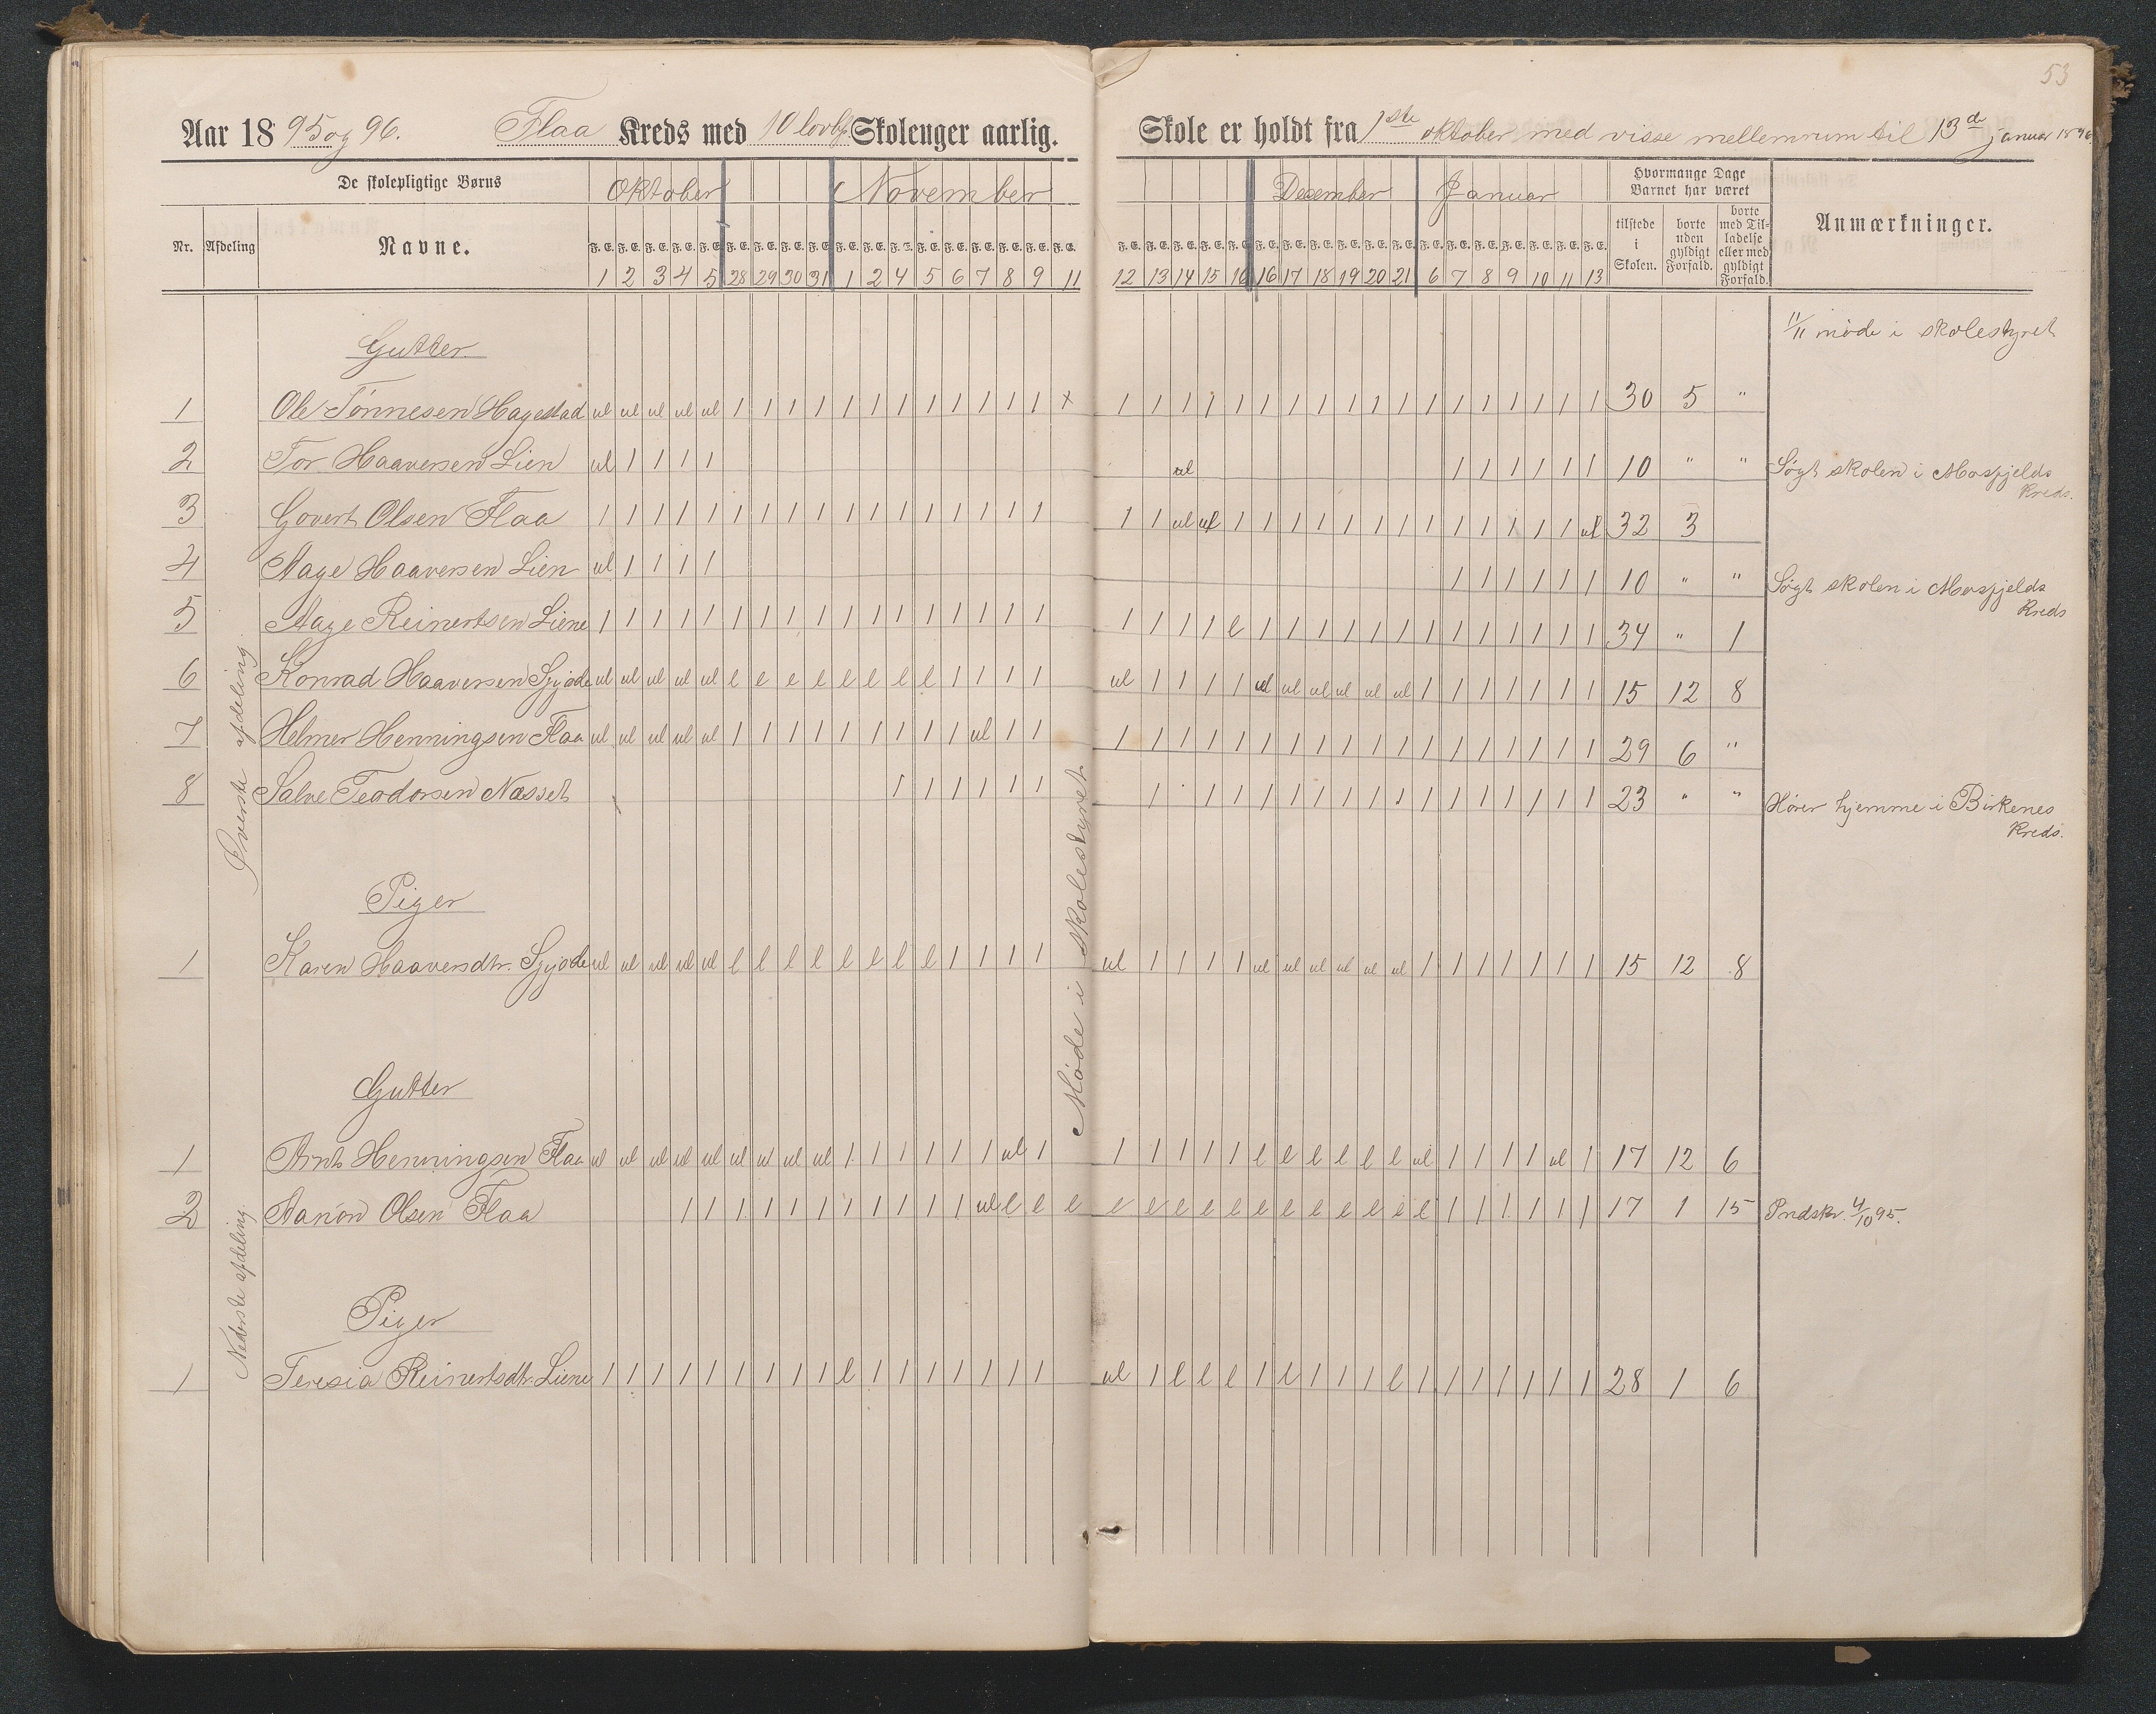 53
Aar 1895 og 96. Flaa Kreds med 10 lovbf. Skoleuger aarlig. Skole er holdt fra 1ste oktober med visse mellemrum til 13de januar 1896.
De skolepligtige Børns Oktober November December Januar Hvormange Dage Barnet har været
Nr. Afdeling Navne. F. E. F. E. F. E. F. E. F. E. F. E. F. E. F. E. F. E. F. E. F. E. F. E. F. E. F. E. F. E. F. E. F. E. F. E. F. E. F. E. F. E. F. E. F. E. F. E. F. E. F. E. F. E. F. E. F. E. F. E. F. E. F. E. F. E. F. E. F. E. F. E. tilstede i Skolen. borte uden gyldigt Forfald. borte med Tilladelse eller med gyldigt Forfald. Anmærkninger.
1 2 3 4 5 28 29 30 31 1 2 4 5 6 7 8 9 11 12 13 14 15 16 16 17 18 19 20 21 6 7 8 9 10 11 13
11/11 møde i skolestyret
Øverste afdeling
Gutter
1 Ole Tønnesen Hagestad ul ul ul ul ul 1 1 1 1 1 1 1 1 1 1 1 1 x 1 1 1 1 1 1 1 1 1 1 1 1 1 1 1 1 1 1 30 5 "
2 Tor Haaversen Lien ul 1 1 1 1 ul 1 1 1 1 1 1 10 " " Søgt skolen i Mosfjelds Kreds.
3 Govert Olsen Flaa 1 1 1 1 1 1 1 1 1 1 1 1 1 1 1 1 1 1 1 ul ul 1 1 1 1 1 1 1 1 1 1 1 1 1 ul 32 3
4 Aage Haaversen Lien ul 1 1 1 1 1 1 1 1 1 1 10 " " Søgt skolen i Mosfjelds Kreds
5 Aage Reinertsen Liene 1 1 1 1 1 1 1 1 1 1 1 1 1 1 1 1 1 1 1 1 1 l 1 1 1 1 1 1 1 1 1 1 1 1 1 34 " 1
6 Konrad Haaversen Sgjøde ul ul ul ul ul l l l l l l l l 1 1 1 1 ul 1 1 1 1 ul ul ul ul ul ul 1 1 1 1 1 1 1 15 12 8
7 Helmer Henningsen Flaa ul ul ul ul ul 1 1 1 1 1 1 1 1 1 ul 1 1 1 1 1 1 1 1 1 1 1 1 1 1 1 1 1 1 1 1 29 6 "
8 Salve Teodorsen Næsset 1 1 1 1 1 1 1 1 1 1 1 1 1 1 1 1 1 1 1 1 1 1 1 23 " " Hører hjemme i Birkenes Kreds.
Piger
1 Karen Haaversdtr. Sgjøde ul ul ul ul ul l l l l l l l l 1 1 1 1 ul 1 1 1 1 ul ul ul ul ul ul 1 1 1 1 1 1 1 15 12 8
Møde i skolestyret
Nederste afdeling
Gutter
1 Arnt Henningsen Flaa ul ul ul ul ul ul ul ul ul 1 1 1 1 1 1 ul 1 1 1 1 1 1 l l l l l l ul 1 1 1 1 ul 1 17 12 6
2 Aanon Olsen Flaa 1 1 1 1 1 1 1 1 1 1 1 ul l l l l l l l l l l l l l l l 1 1 1 1 1 1 17 1 15 Indskr. 4/10 95.
Piger
1 Teresia Reinertsdtr. Liene 1 1 1 1 1 1 1 1 1 l 1 1 1 1 1 1 1 ul 1 l l l 1 l 1 1 1 l 1 1 1 1 1 1 1 28 1 6